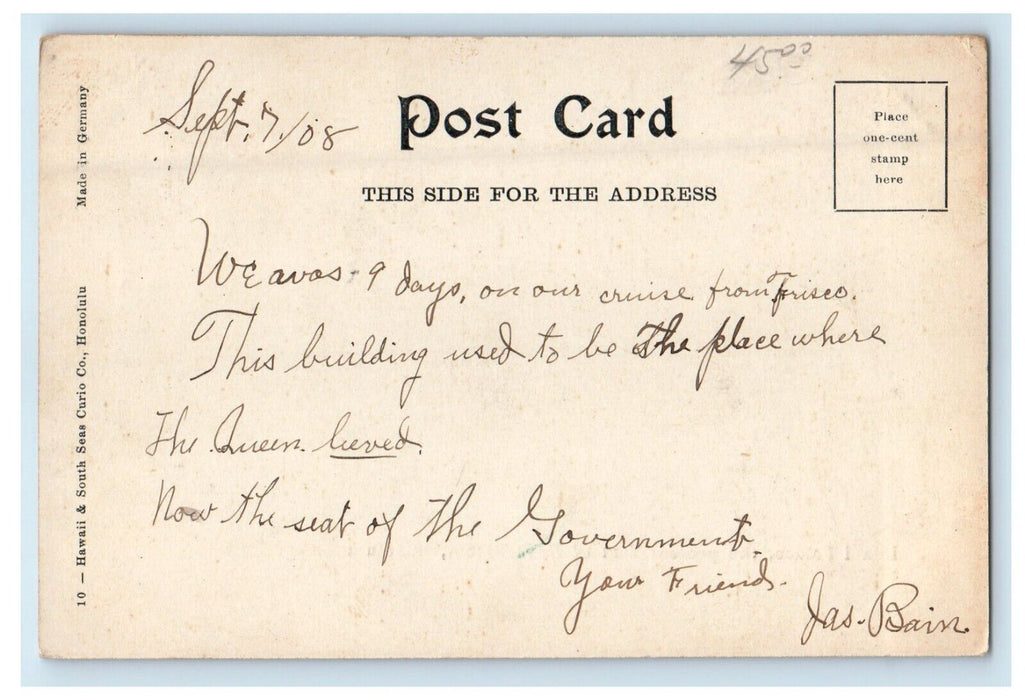 4500
Sept. 7/08
Post Card
THIS SIDE FOR THE ADDRESS
Place
one-cent
stamp
here
Made in Germany
10 — Hawaii & South Seas Curio Co., Honolulu
We avos - 9 days, on our cruise from Frisco.
This building used to be the place where
The Queen. lieved.
Now the seat of the Government.
Your Friend.
Jas. Bain.